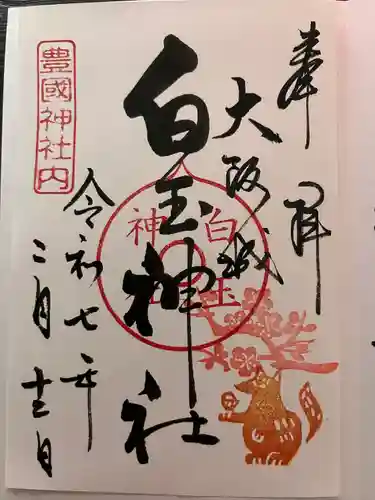 奉拝
大阪城
白玉神社
豊國神社内
白玉
神社
令和七年
二月十三日